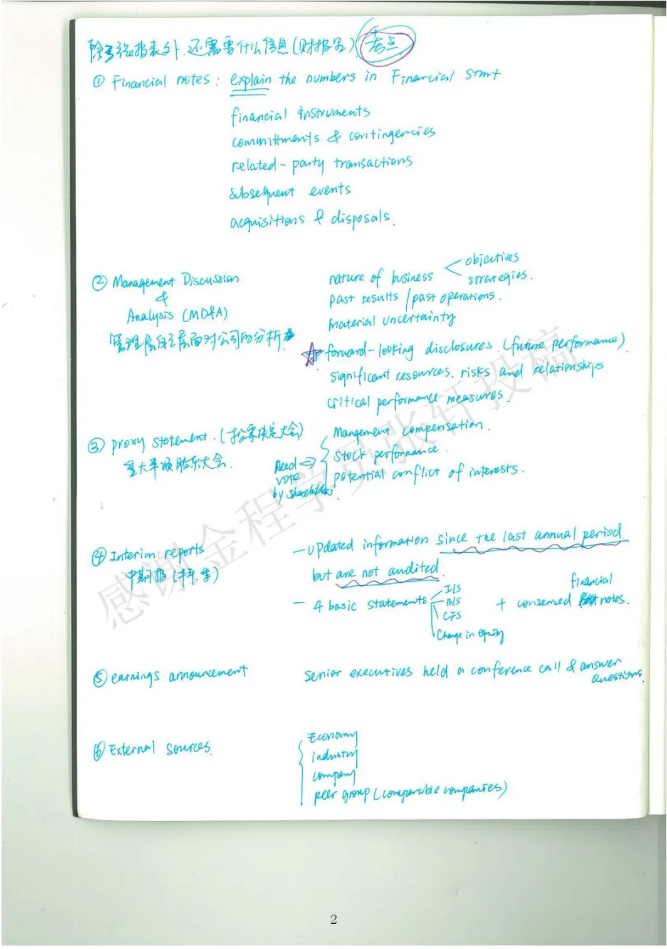 除了财报表外,还需要什么信息(财报等) 考点
① Financial notes: explain the numbers in Financial stmt
financial instruments
commitments & contingencies
related-party transactions
subsequent events
acquisitions & disposals.
② Management Discussion
&
Analysis (MD&A)
管理层自己层面对公司的分析
nature of business
objectives
strategies.
past results / past operations.
material uncertainty
☆ forward-looking disclosures (future performance)
significant resources, risks and relationships
critical performance measures.
③ proxy statement. (投票决定大会)
重大事项股东大会.
Need
vote
by shareholders
Mangement compensation.
stock performance.
potential conflict of interests.
④ Interim reports
中期报(半年.季)
- updated information since the last annual period
but are not audited.
- 4 basic statements
I/S
B/S
CFS
Change in Equity
+ consensed financial notes.
⑤ earnings announcement
senior executives held a conference call & answer
questions.
⑥ External sources.
Economy
industry
company
peer group (comparable companies)
感谢金程学员张轩投稿
2